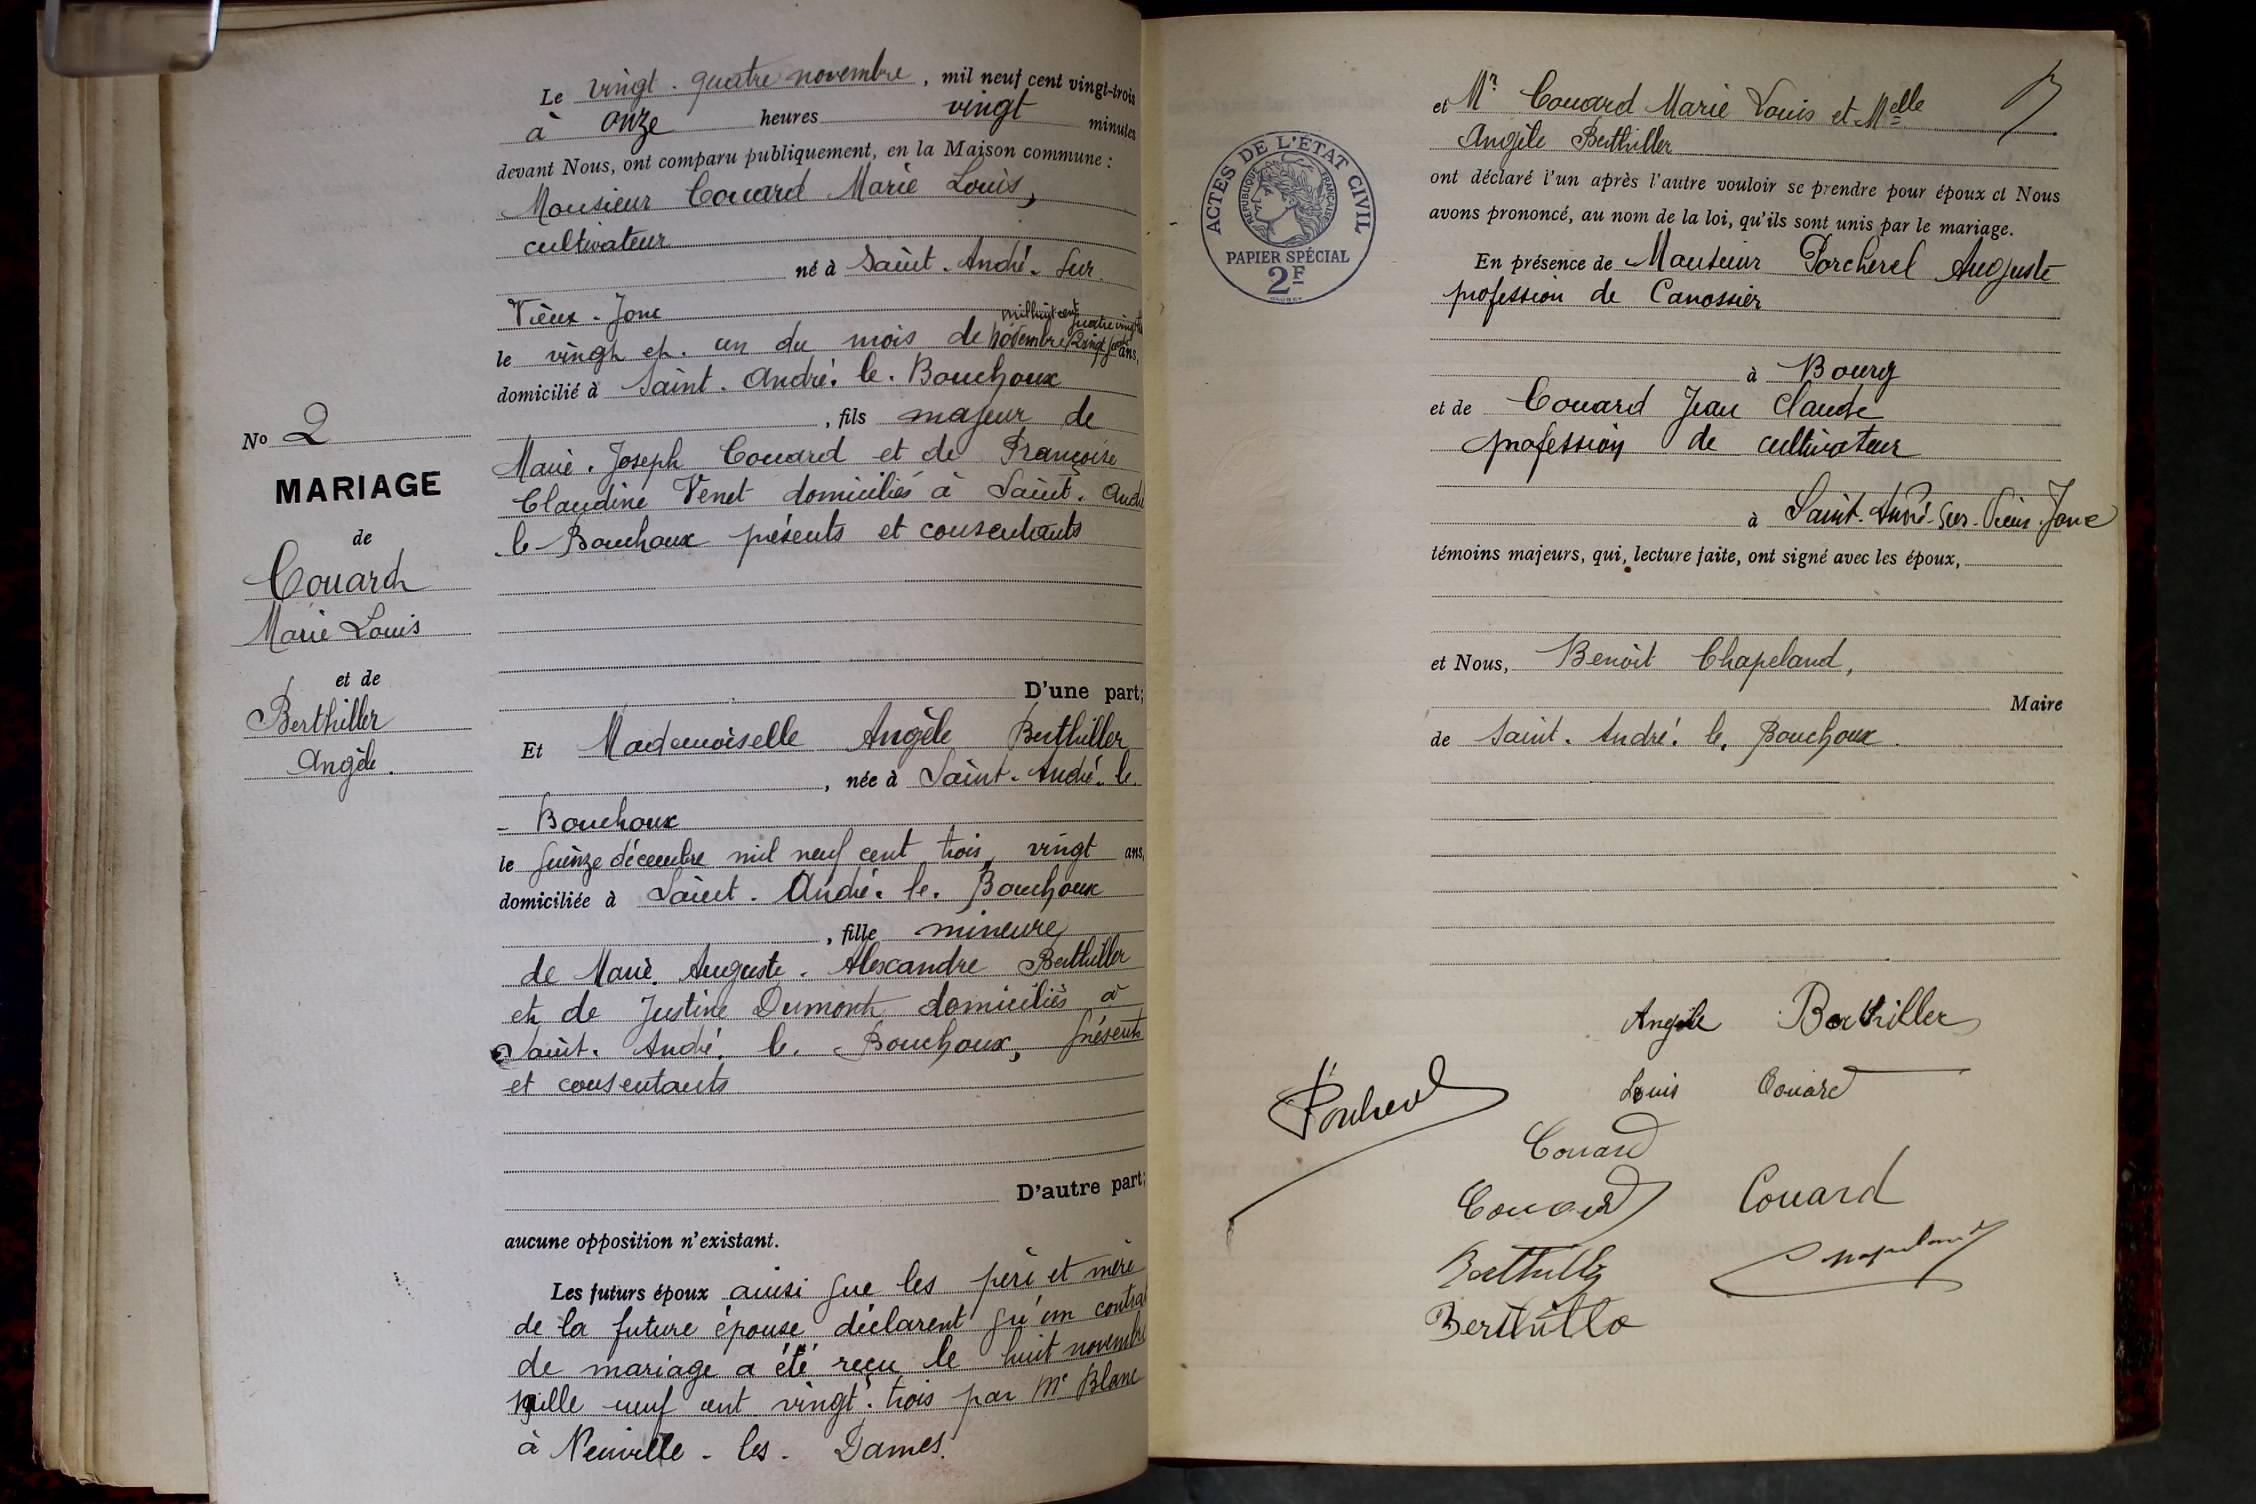 Le vingt-quatre novembre, mil neuf cent vingt-trois
à onze heures vingt minutes
devant Nous, ont comparu publiquement, en la Maison commune :
Monsieur Couard Marie Louis,
cultivateur
né à Saint-André-sur-
Vieux-Jonc
mil huit cent
quatre vingt
le vingt et un du mois de novembre ans,
domicilié à Saint-André-le-Bouchoux
, fils majeur de
Marie-Joseph Couard et de Françoise
Claudine Venet domiciliés à Saint-André
le-Bouchoux présents et consentants
No 2
MARIAGE
de
Couard
Marie Louis
et de
Berthiller
Angèle.
D'une part;
Et Mademoiselle Angèle Berthiller
, née à Saint-André-le
-Bouchoux
le quinze décembre mil neuf cent trois, vingt ans,
domiciliée à Saint-André-le-Bouchoux
, fille mineure
de Marie-Auguste-Alexandre Berthiller
et de Justine Dumont domiciliés à
Saint-André-le-Bouchoux, présents
et consentants
D'autre part;
aucune opposition n'existant.
Les futurs époux ainsi que les père et mère
de la future épouse déclarent qu'un contrat
de mariage a été reçu le huit novembre
mille neuf cent vingt-trois par Me Blanc
à Neuville-les-Dames.
et Mr Couard Marie Louis et Melle
Angèle Berthiller
ont déclaré l'un après l'autre vouloir se prendre pour époux et Nous
avons prononcé, au nom de la loi, qu'ils sont unis par le mariage.
En présence de Monsieur Porcherel Auguste
profession de Carrossier
à Bourg
et de Couard Jean Claude
profession de cultivateur
à Saint-André-sur-Vieux-Jonc
témoins majeurs, qui, lecture faite, ont signé avec les époux,
et Nous, Benoît Chapeland,
Maire
de Saint-André-le-Bouchoux.
ACTES DE L'ÉTAT CIVIL
RÉPUBLIQUE FRANÇAISE
PAPIER SPÉCIAL
2F
Angèle Berthiller
Louis Couard
Porcherel
Couard
Couard Couard
Berthiller Chapeland